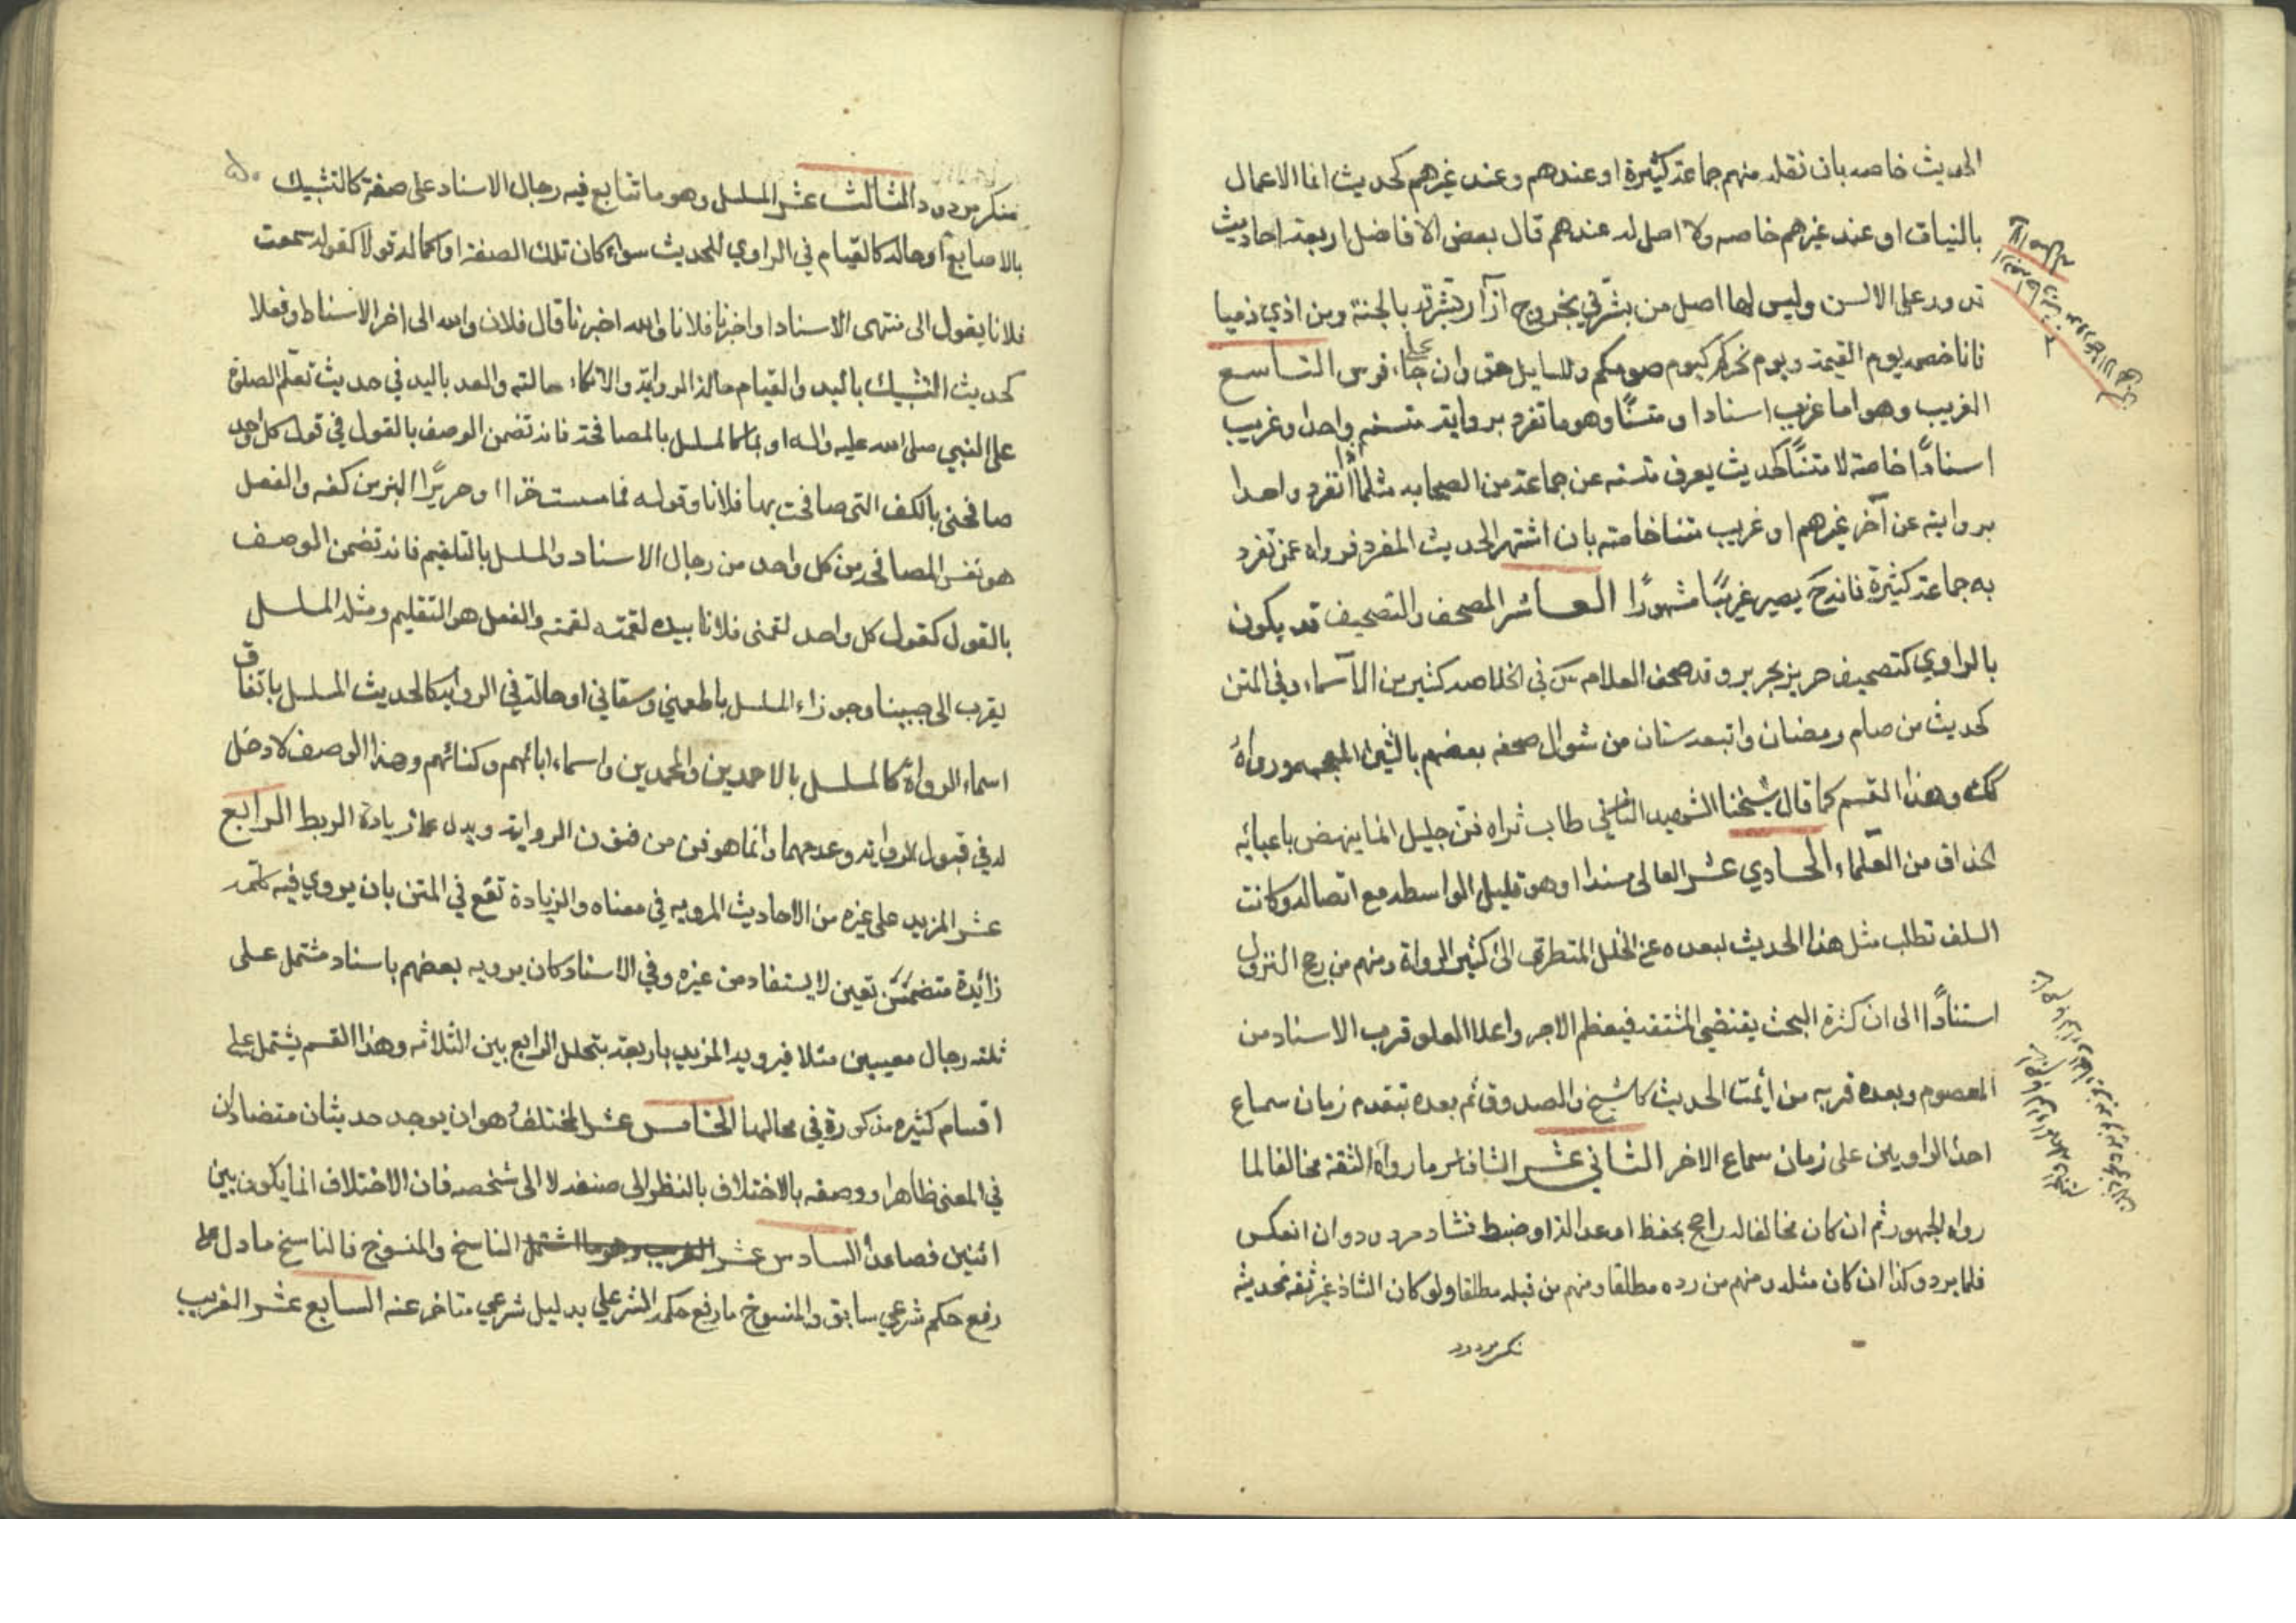 الحديث خاصه بان نقله منهم جماعة كثيرة او عندهم وعند غيرهم كحديث انما الاعمال
بالنيات او عند غيرهم خاصه ولا اصل له عندهم قال بعض الافاضل اربعة احاديث
تدور على الالسن وليس لها اصل من بشرني بخروج آزار بشرته بالجنة ومن اذي ذميا
فانا خصمه يوم القيمة ويوم نحركم كيوم صومكم وللسايل حق وان جاء على فرس التاسع
الغريب وهو اما غريب اسنادا ومتنًا وهو ما تفرد برواية متنه واحد او غريب
اسنادًا خاصة لا متنًا كحديث يعرف متنه عن جماعة من الصحابه مثلا اذا انفرد واحدا
بروايته عن آخر غيرهم او غريب متنا خاصته بان اشتهر الحديث المفرد فرواه عمن تفرد
به جماعة كثيرة فانه ح يصير غريبًا مشهورًا العاشر المصحف والتصحيف قد يكون
بالراوي كتصحيف حريز بجرير وقد صحف العلامه في الخلاصه كثير من الآسماء وفي المتن
كحديث من صام رمضان واتبعه ستا من شوال صحفه بعضهم بالشين المعجمه ورواه
كك وهذا القسم كما قال شيخنا الشهيد الثاني طاب ثراه فن جليل انما ينهض باعبائه
الحذاق من العلماء الحادي عشر العالى سندا وهو قليل الواسطه مع اتصاله وكانت
السلف تطلب مثل هذا الحديث لبعده عن الخلل المتطرق الى كثير الرواة ومنهم من رجح النزول
استنادًا الى ان كثرة البحث يقتضي المشقة فيعظم الاجر واعلا العلو قرب الاسناد من
المعصوم وبعده قربه من أيمة الحديث كالشيخ والصدوق ثم بعده تقدم زمان سماع
احد الراويين على زمان سماع الاخر الثاني عشر الشاذ وهو ما رواه الثقة مخالفا لما
رواه الجمهور ثم ان كان مخالفا له راجح بحفظ او عدالة او ضبط فشاذ مردود وان انعكس
فلا يرد وكذا ان كان مثله ومنهم من رده مطلقا ومنهم من قبله مطلقا ولو كان الشاذ غير ثقة فحديثه
منكر مردود
منكر مردود الثالث عشر المسلسل وهو ما تتابع فيه رجال الاسناد على صفة كالتشبيك
بالاصابع او حاله كالقيام في الراوي للحديث سواء كان تلك الصفة او الحاله قولا كقوله سمعت
فلانا يقول الى منتهى الاسناد او اخبرنا فلانا والله اخبرنا قال فلان والله الى اخر الاسناد او فعلا
كحديث التشبيك باليد والقيام حالة الرواية والاتكاء حالته والعد باليد في حديث تعلم الصلوة
على النبي صلى الله عليه واله او بهما كالمسلسل بالمصافحة فانه تضمن الوصف بالقول في قول كل واحد
صافحني بالكف التي صافحت بها فلانا وقوله فما مسست خزا ا وحريرًا الين من كفه والفعل
هو نفس المصافحه من كل واحد من رجال الاسناد والمسلسل بالتلقيم فانه تضمن الوصف
بالقول كقول كل واحد لقمني فلانا بيده لقمته لقمته والفعل هو التقليم ومثله المسلسل
باطعمني وسقاني او حالة في الرواية كالحديث المسلسل باتفاق
اسماء الرواة كالمسلسل بالاحمدين والمحمدين واسماء ابائهم وكنائهم وهذا الوصف لا دخل
له في قبول الرواية وعدمها وانما هو فن من فنون الرواية ويدل على زيادة الربط الرابع
عشر المزيد على غيره من الاحاديث المرويه في معناه والزيادة تقع في المتن بان يروي فيه كلمة
زائدة متضمن تعين لا يستفاد من غيره وفي الاسناد كان يرويه بعضهم باسناد مشتمل على
ثلثه رجال معيينين مثلا فيرويه المزيد باربعة بتخلل الرابع بين الثلاثه وهذا القسم يشتمل على
اقسام كثيره مذكورة في محالها الخامس عشر المختلف وهو ان يوجد حديثان متضادان
في المعنى ظاهرا ووصفه بالاختلاف بالنظر الى صنفه لا الى شخصه فان الاختلاف انما يكون بين
اثنين فصاعدا السادس عشر الغريب وهو ما اشتمل الناسخ والمنسوخ فالناسخ ما دل على
رفع حكم شرعي سابق والمنسوخ ما رفع حكمه الشرعي بدليل شرعي متاخر عنه السابع عشر الغريب